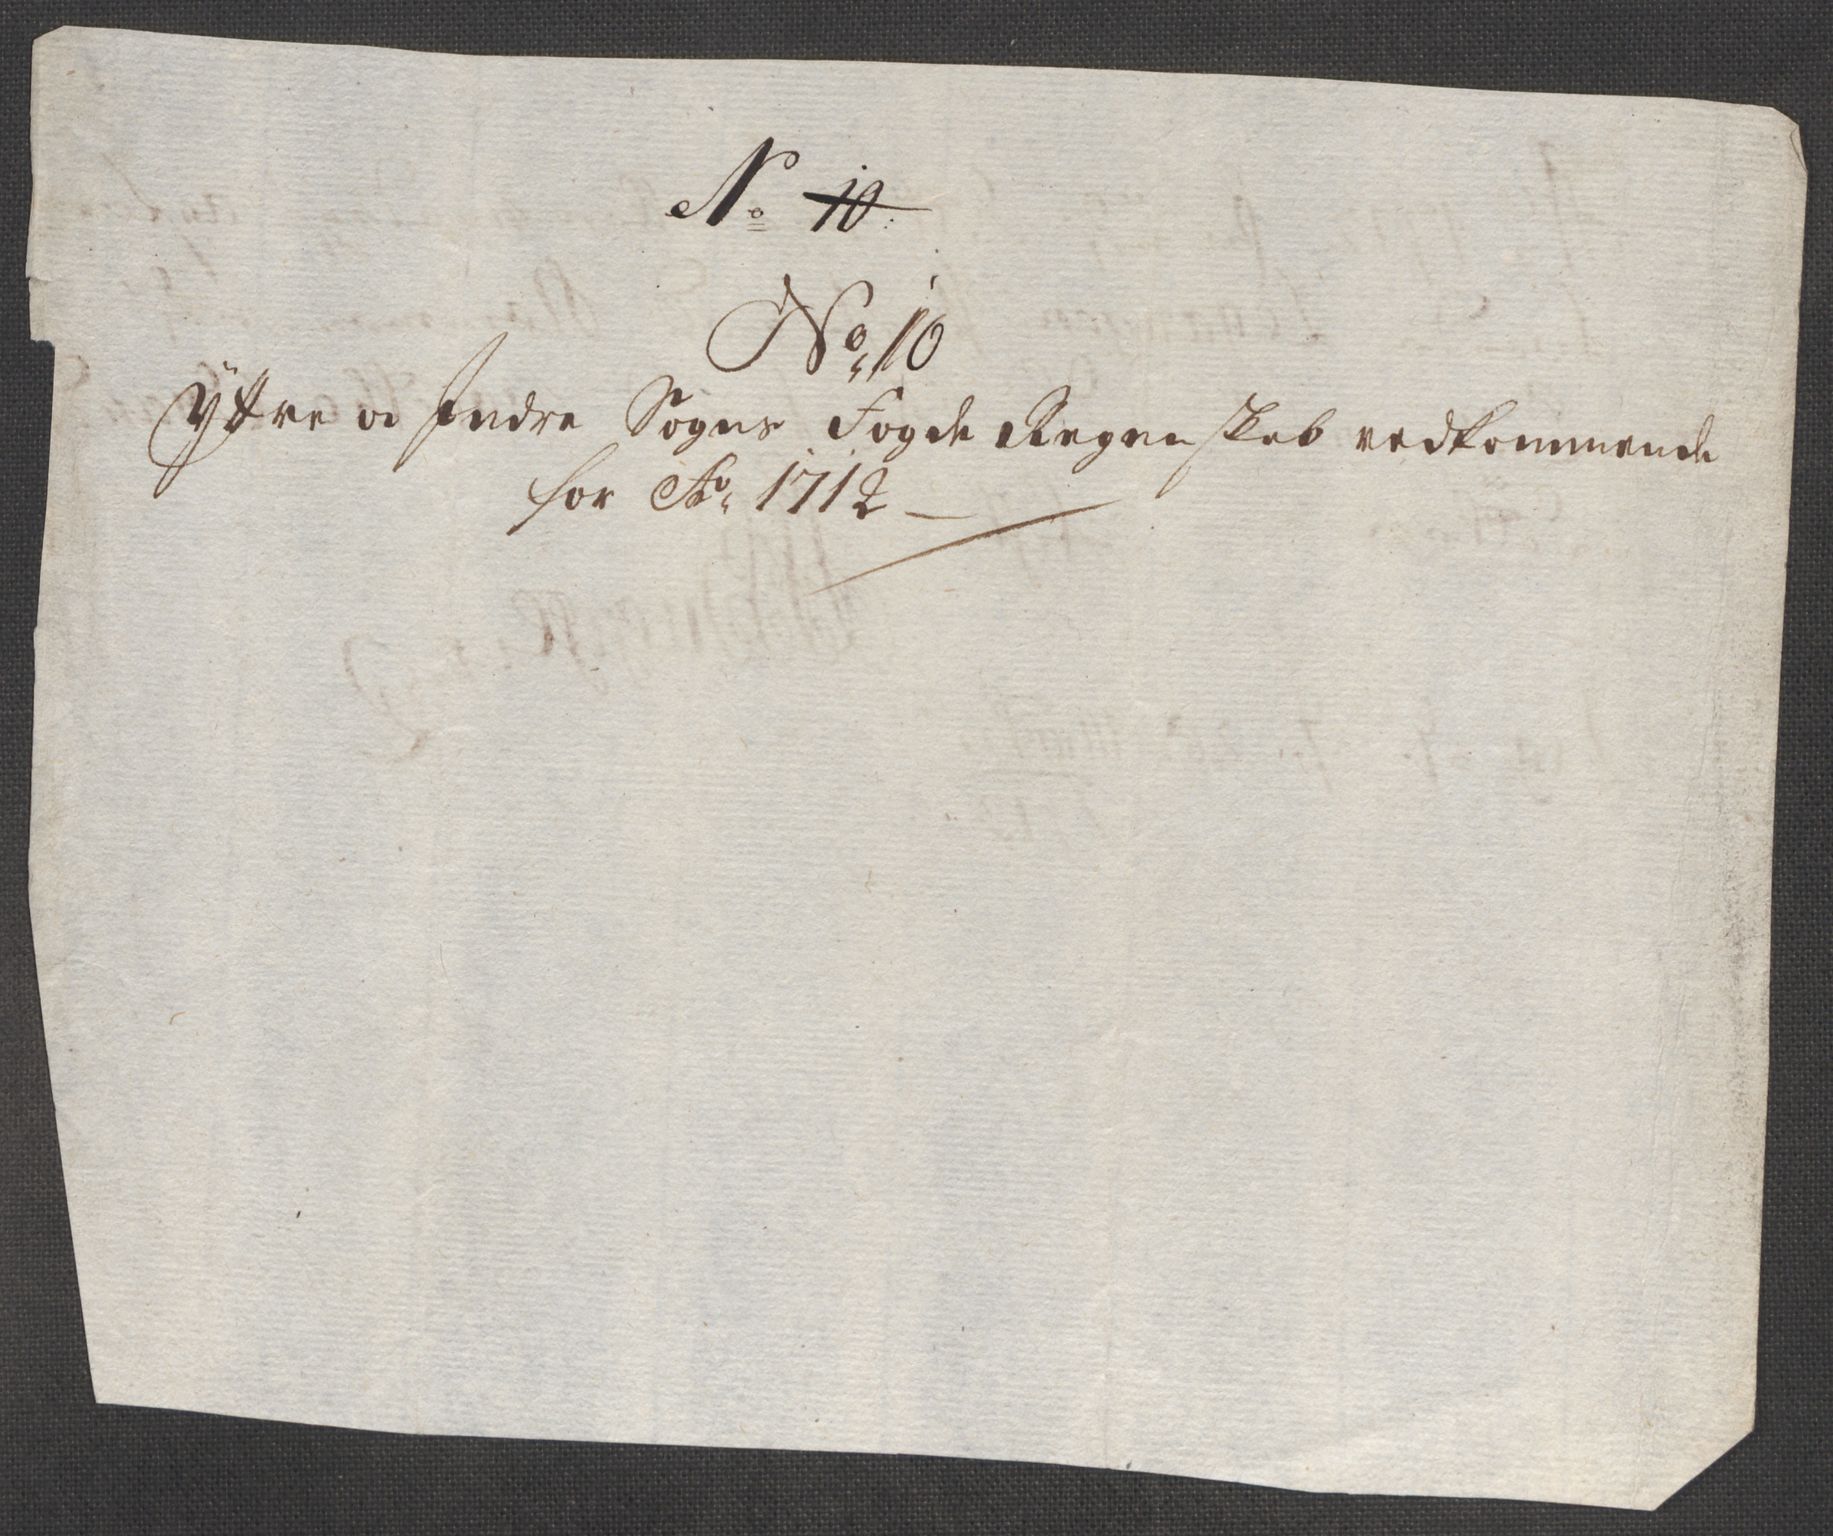 No 10
No 10
Ÿttre oc Indre Sogns Fogde Regenskab vedkommende
for Ao 1712